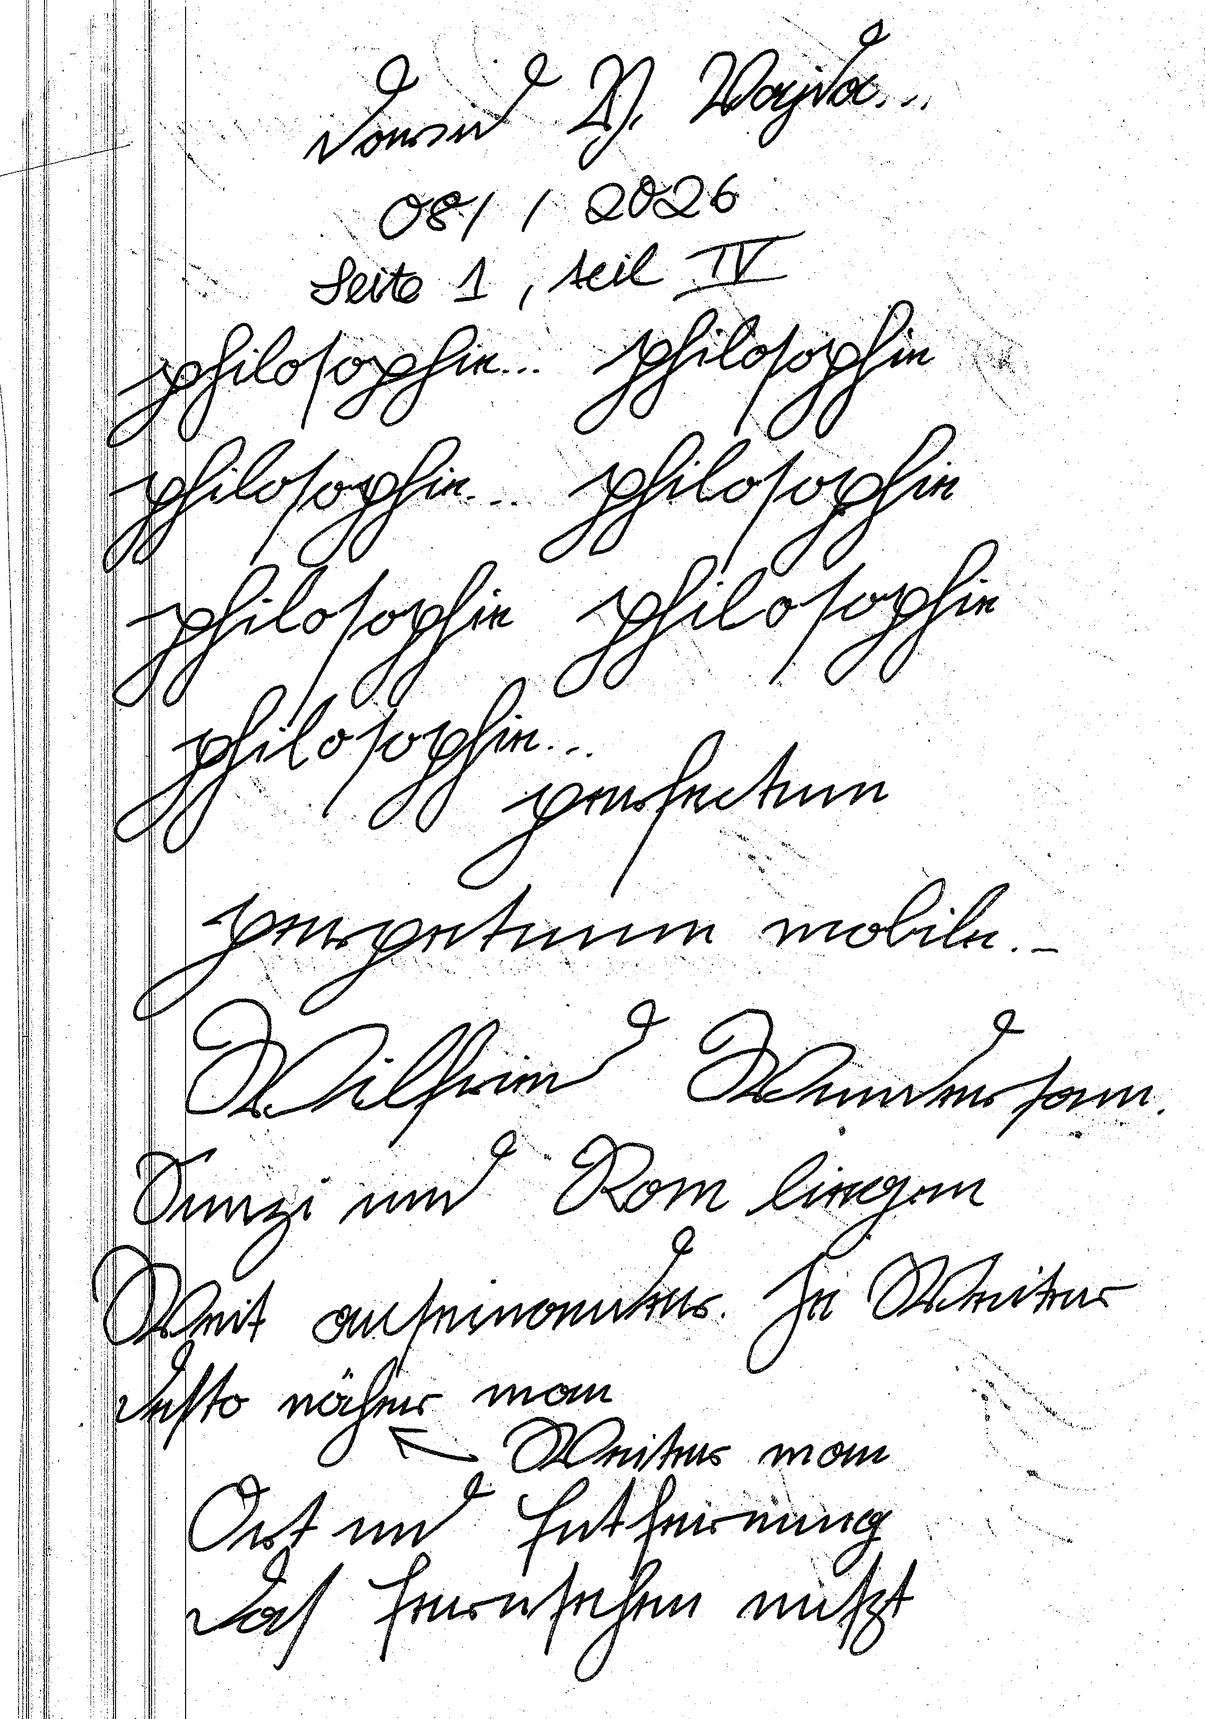 08/ / 2026
Seite 1, teil IV
philosophie... philosophie
philosophie... philosophie
philosophie philosophie
philosophie...
perfectum
perpetuum mobile.-
Wilfried Wundersam.
Sunzi und Rom liegen
Weit auseinander. Je Weiter
desto näher man
Weiter man
Ort und Entfernung
das Fernsehen nützt